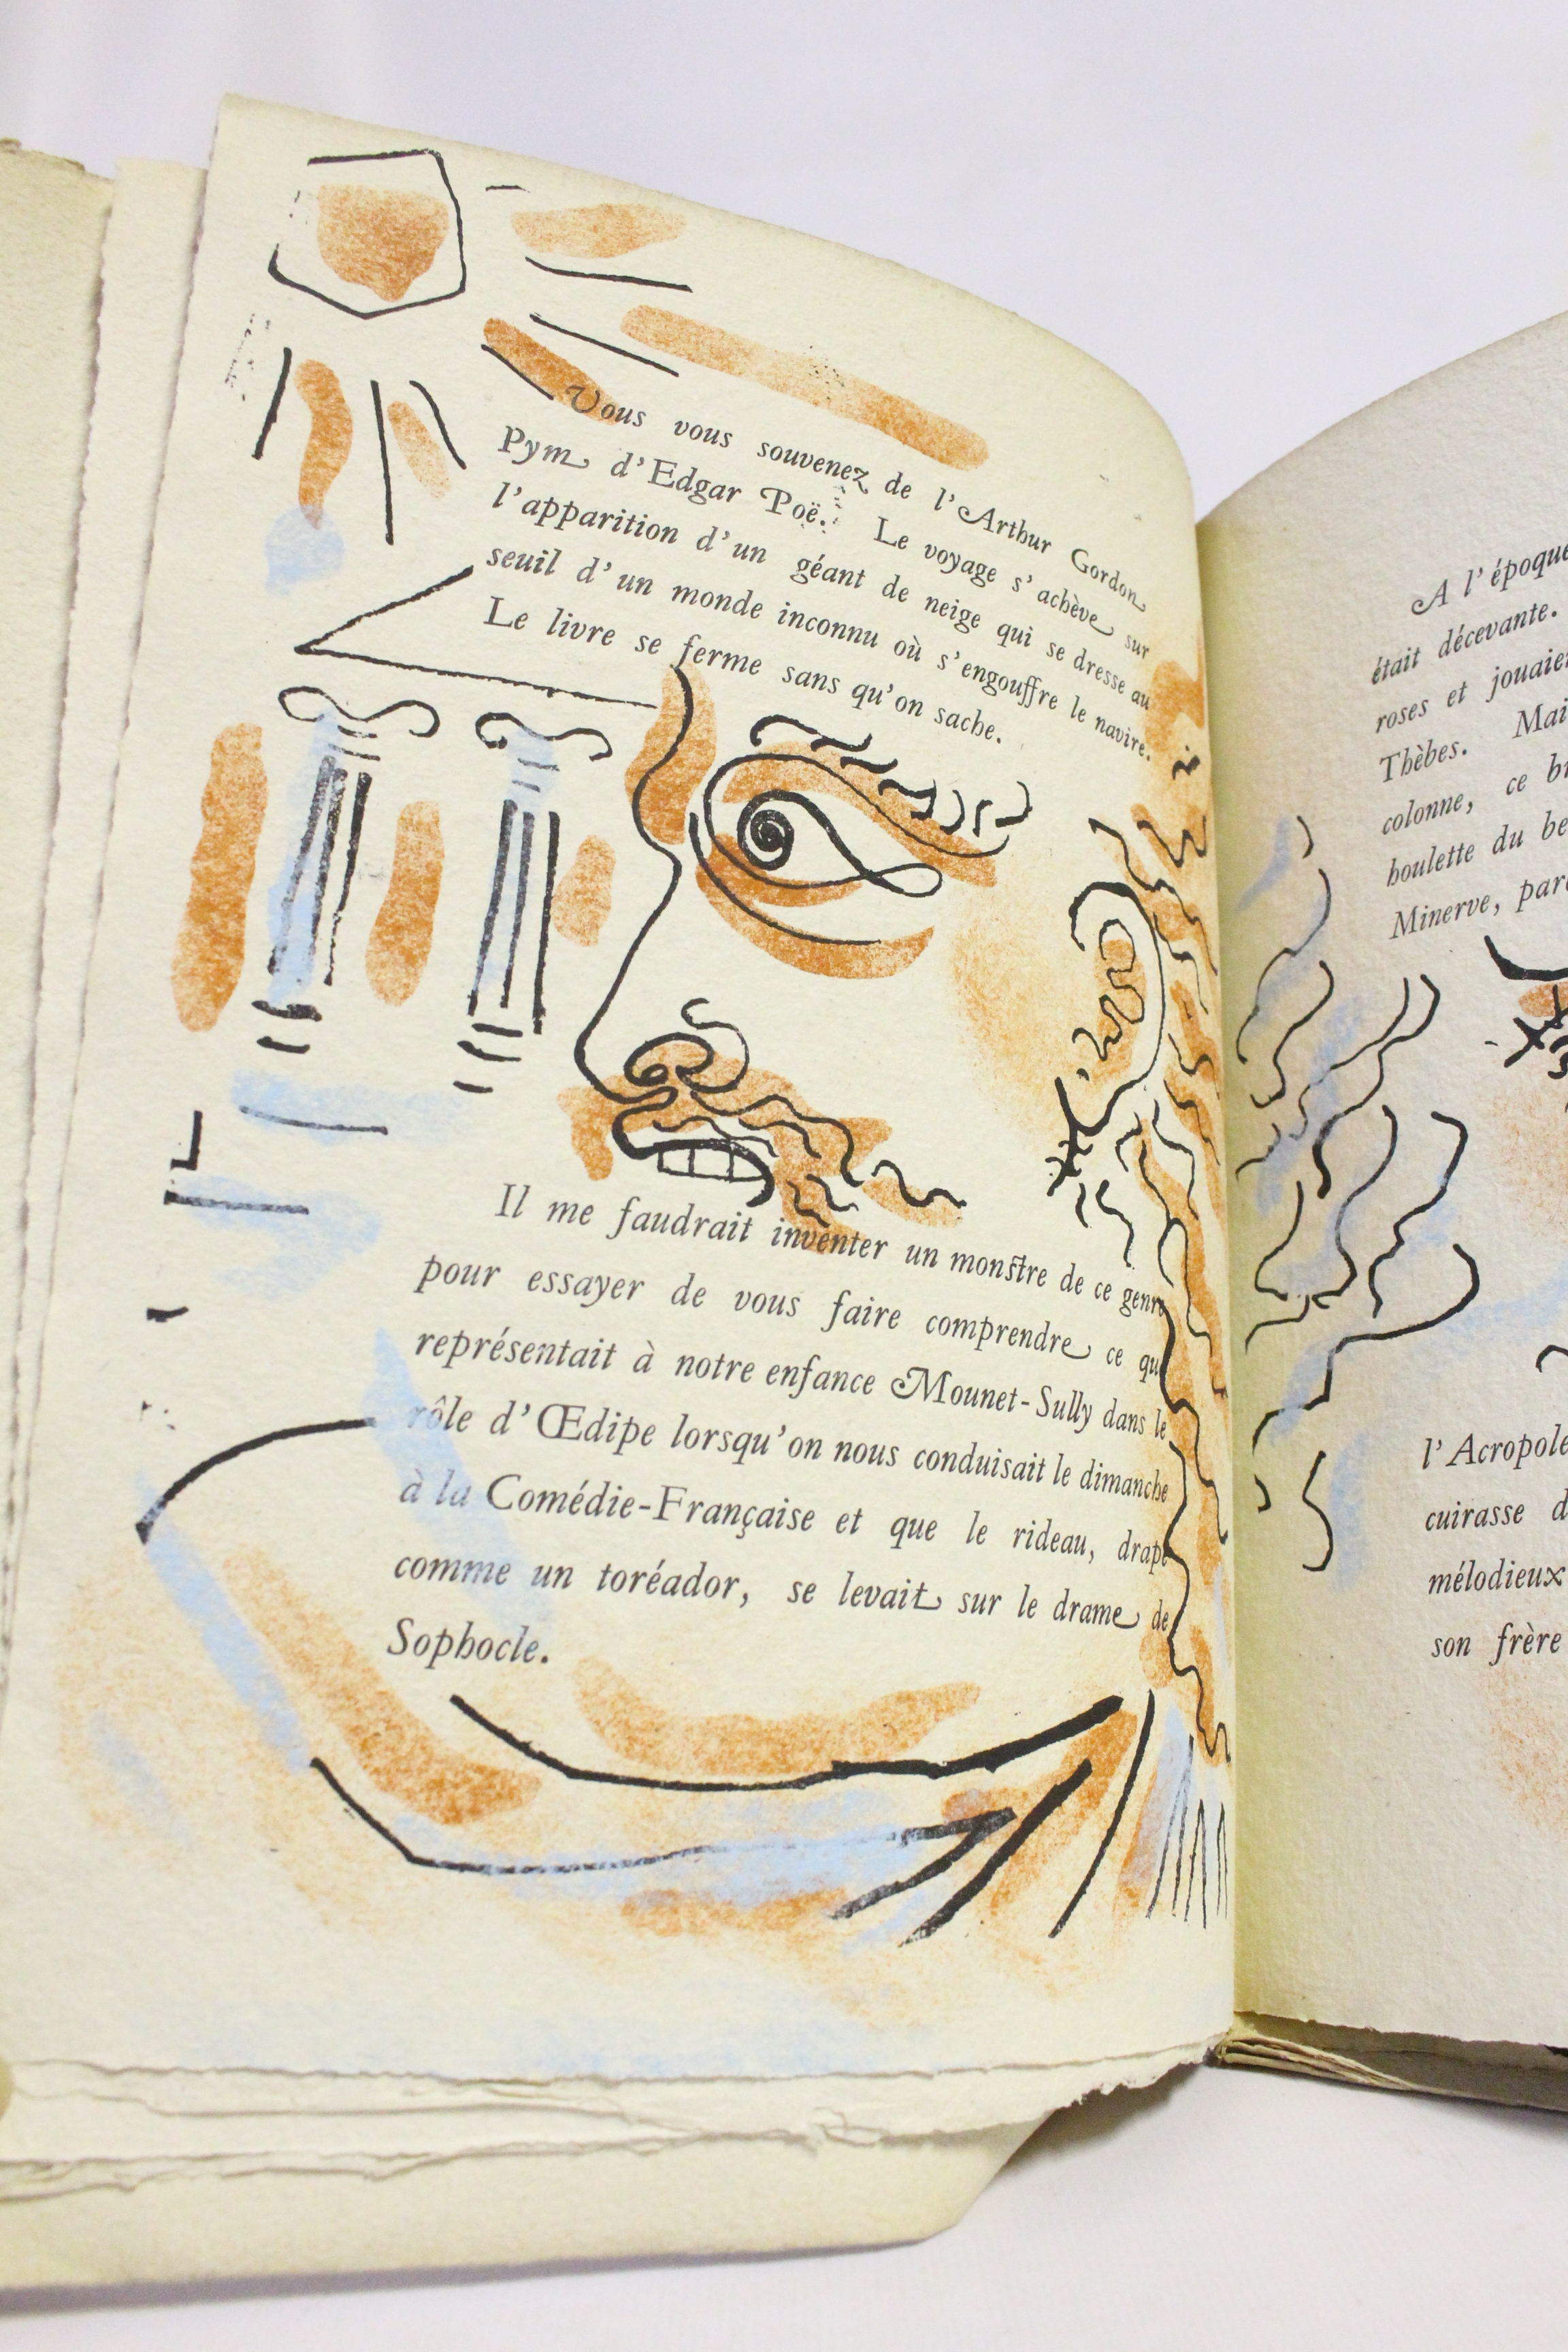 Vous vous souvenez de l'Arthur Gordon
Pym d'Edgar Poë. Le voyage s'achève sur
l'apparition d'un géant de neige qui se dresse au
seuil d'un monde inconnu où s'engouffre le navire.
Le livre se ferme sans qu'on sache.
Il me faudrait inventer un monstre de ce genre
pour essayer de vous faire comprendre ce que
représentait à notre enfance Mounet-Sully dans le
rôle d'Œdipe lorsqu'on nous conduisait le dimanche
à la Comédie-Française et que le rideau, drapé
comme un toréador, se levait sur le drame de
Sophocle.
A l'époque
était décevante.
roses et
Thèbes.
colonne, ce
houlette du
Minerve,
l'Acropole
cuirasse
mélodieux
son frère